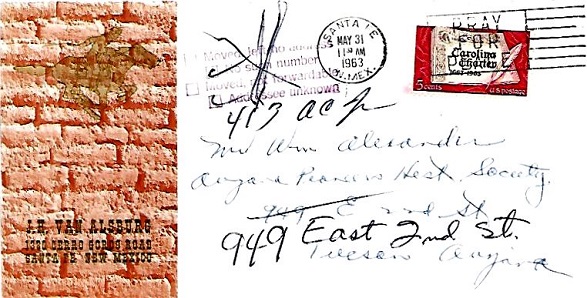 J.H. VAN ALSBURG
1370 CERRO GORDO ROAD
SANTA FE NEW MEXICO
Moved, left no address
No such number
Moved, not forwardable
Addressee unknown
SANTA FE
MAY 31
11 AM
1963
N. MEX.
PRAY
FOR
PEACE
Carolina
Charter
1663-1963
5 cents
U.S. postage
413
Mr Wm Alexander
Arizona Pioneers Hist. Society
949 E 2nd St.
949 East 2nd St.
Tucson Arizona